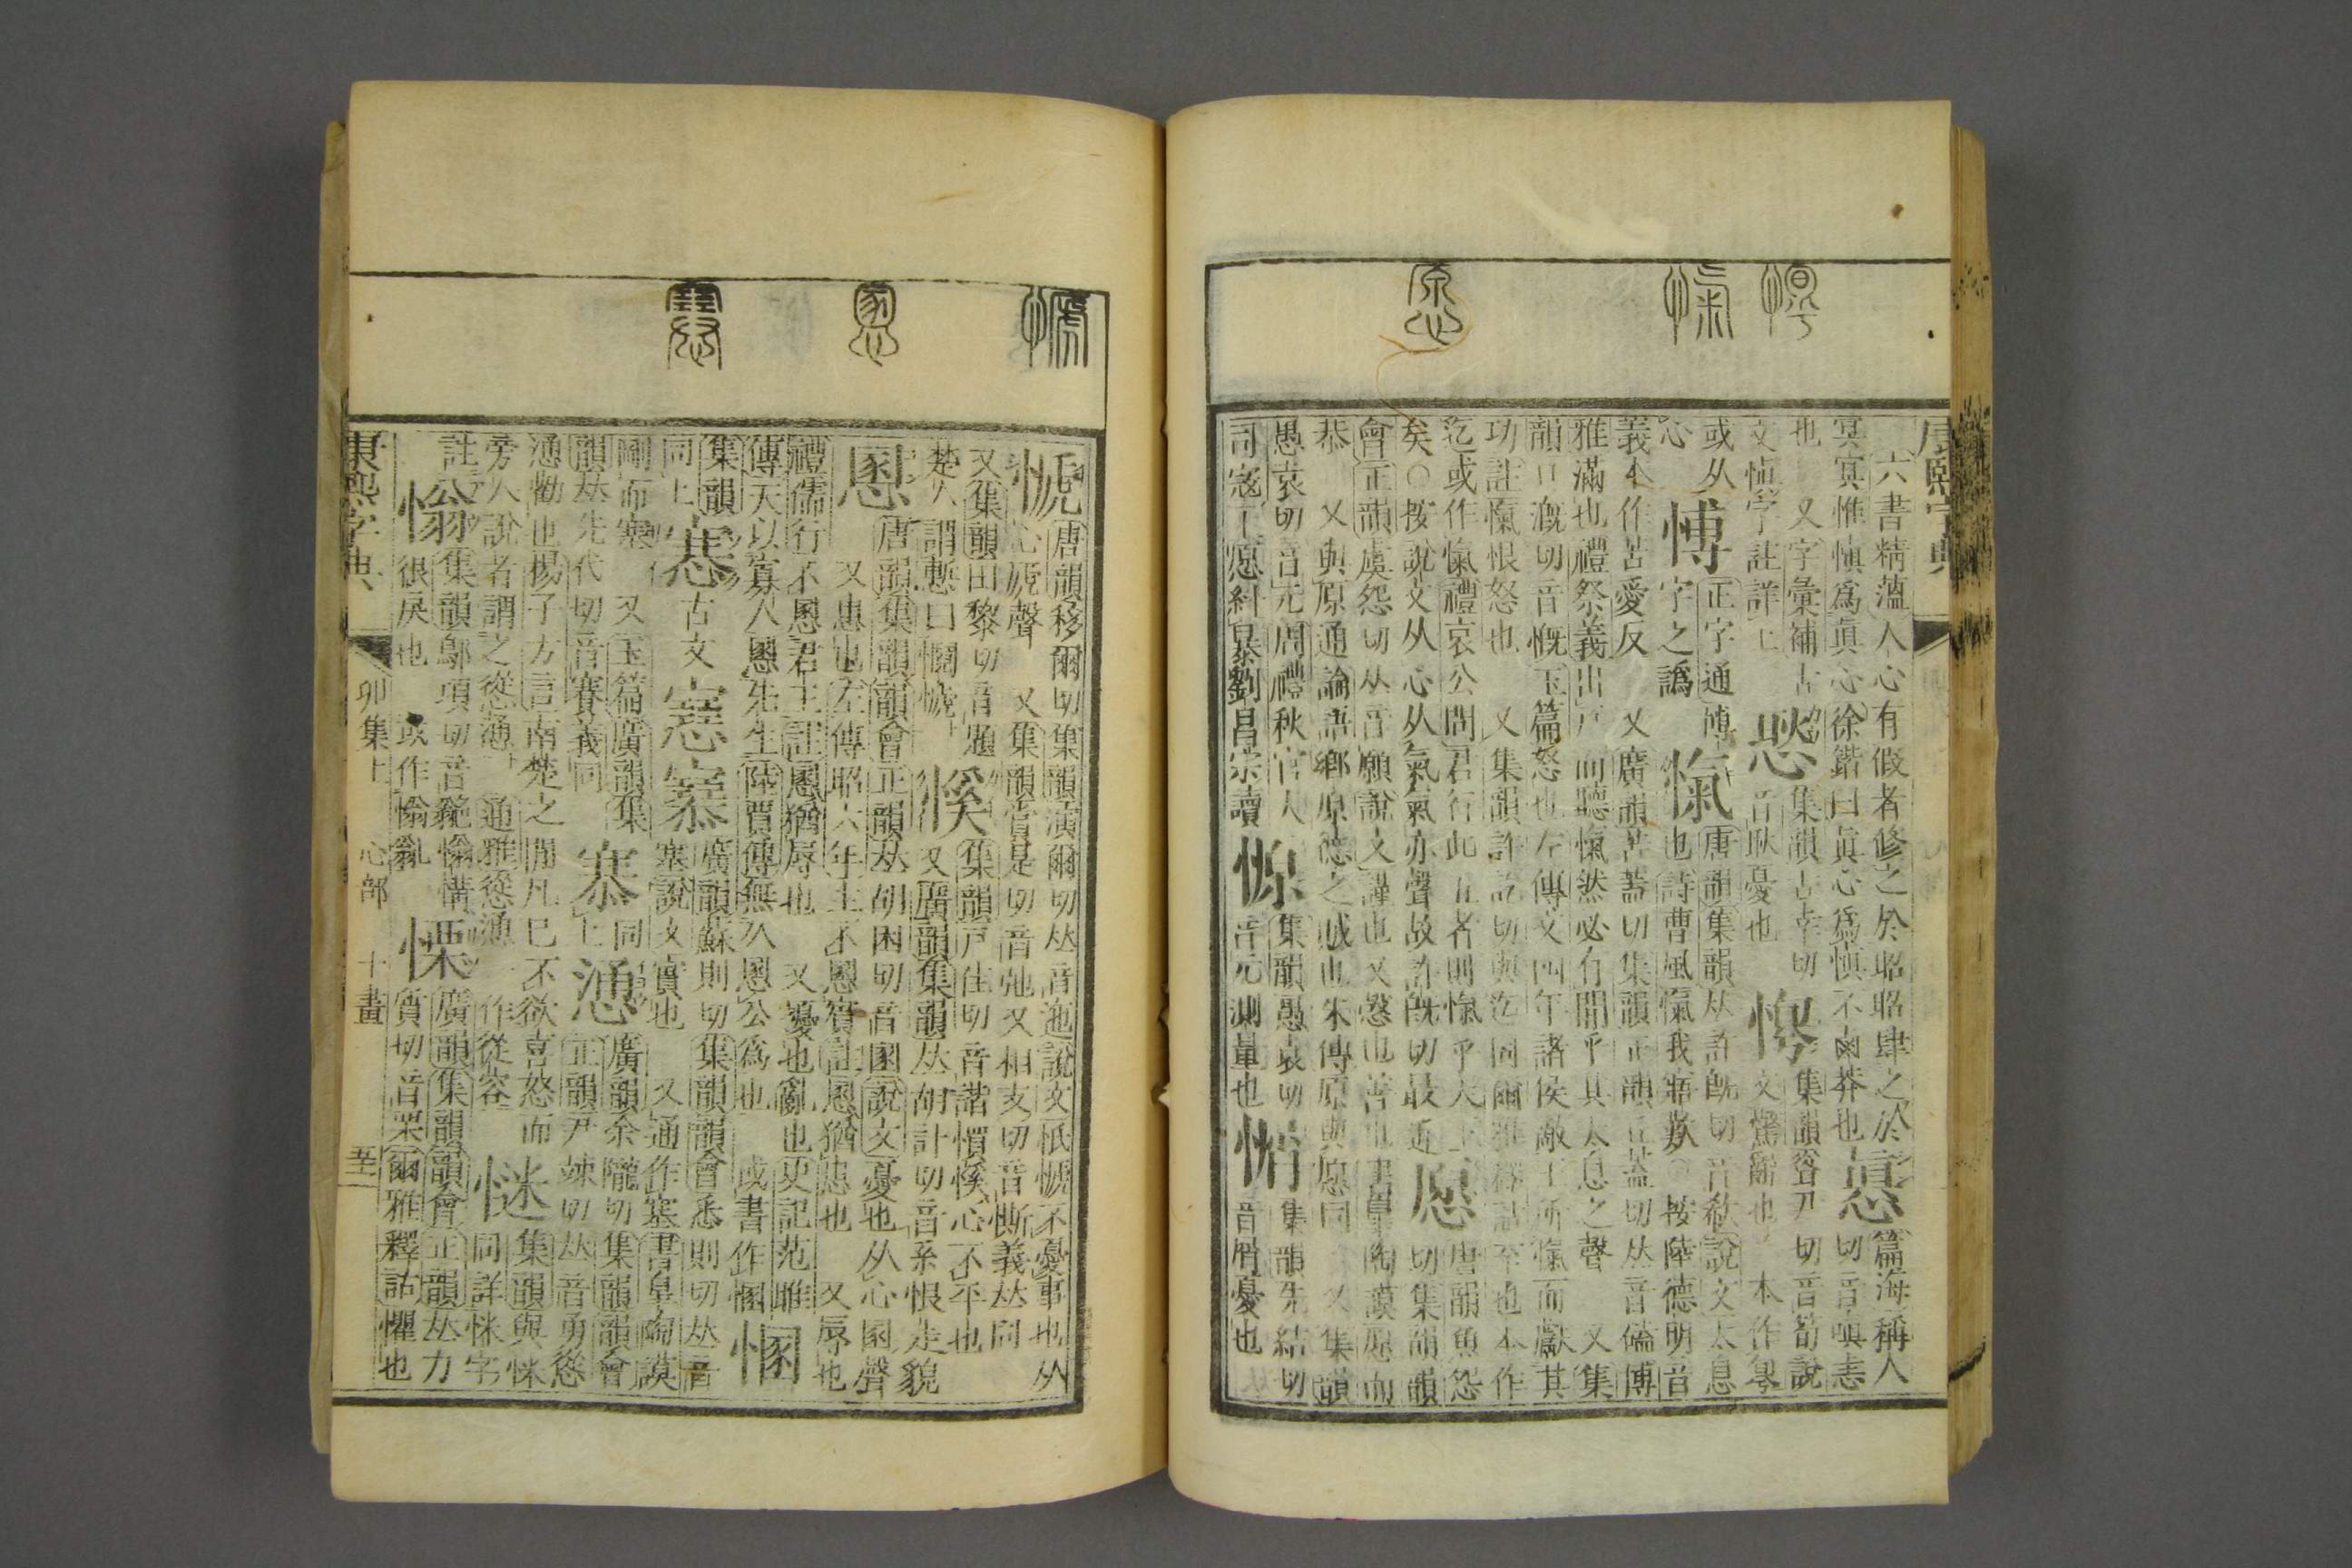 康熙字典
六書精薀人心有假者修之於昭昭肆之於
冥冥惟愼爲眞心徐鍇曰眞心爲愼不鹵莽也
慐
篇海稱人切音嗔恚
也 又字彙補古
文愼字註詳上
㥏
集韻古幸切
音耿憂也
惸
集韻聳尹切音荀說
文驚辭也 本作㝁
或从
心
愽
正字通博
字之譌
愾
唐韻集韻𠀤許旣切音欷說文太息
也詩曹風愾我寤歎 按陸德明音
義本作苦愛反 又廣韻苦蓋切集韻正韻丘蓋切𠀤音磕博
雅滿也禮祭義出戸而聽愾然必有聞乎其太息之聲 又集
韻口漑切音慨玉篇怒也左傳文四年諸侯敵王所愾而獻其
功註愾恨怒也 又集韻許訖切與迄同爾雅釋詁至也本作
迄或作愾禮哀公問君行此五者則愾乎天下
矣○按說文从心从氣氣亦聲故許旣切最近
愿
唐韻魚怨
切集韻韻
會正韻虞怨切𠀤音願說文謹也又愨也善也書臯陶謨愿而
恭 又與原通論語鄕原德之賊也朱傳原與愿同 又集韻
愚袁切音元周禮秋官大
司寇上愿糾暴劉昌宗讀
㥳
集韻愚袁切
音元測量也
㞕
集韻先結切
音屑憂也
㥴
唐韻移爾切集韻演爾切𠀤音迤說文忯㥴不憂事也从
心虒聲 又集韻賞是切音弛又相支切音斯義𠀤同
又集韻田黎切音題
楚人謂慙曰㦖㥴
徯
集韻戸佳切音諧㥜徯心不平也
又廣韻集韻𠀤胡計切音系恨走貌
慁
唐韻集韻韻會正韻𠀤胡困切音圂說文憂也从心圂聲
又患也左傳昭六年主不慁賓註慁猶患也 又辱也
禮儒行不慁君王註慁猶辱也 又憂也亂也史記范雎
傳天以寡人慁先生陸賈傳無久慁公爲也 或書作㥵
㥵
集韻
同上
㥶
古文
𡫳
𡪿
廣韻蘇則切集韻韻會悉則切𠀤音
塞說文實也 又通作塞書臯陶謨
剛而塞 又玉篇廣韻集
韻𠀤先代切音賽義同
𢜩
同
上
慂
廣韻余隴切集韻韻會
正韻尹竦切𠀤音勇慫
慂勸也揚子方言南楚之閒凡已不欲喜怒而
旁人說者謂之慫慂 通雅慫慂一作從容
㥸
集韻與㥘
同詳㥘字
註
㥷
集韻鄔項切音㙂㥷㦀
很戾也 或作㥷
慄
廣韻集韻韻會正韻𠀤力
質切音栗爾雅釋詁懼也
康熙字典 卯集上 心部 十畫